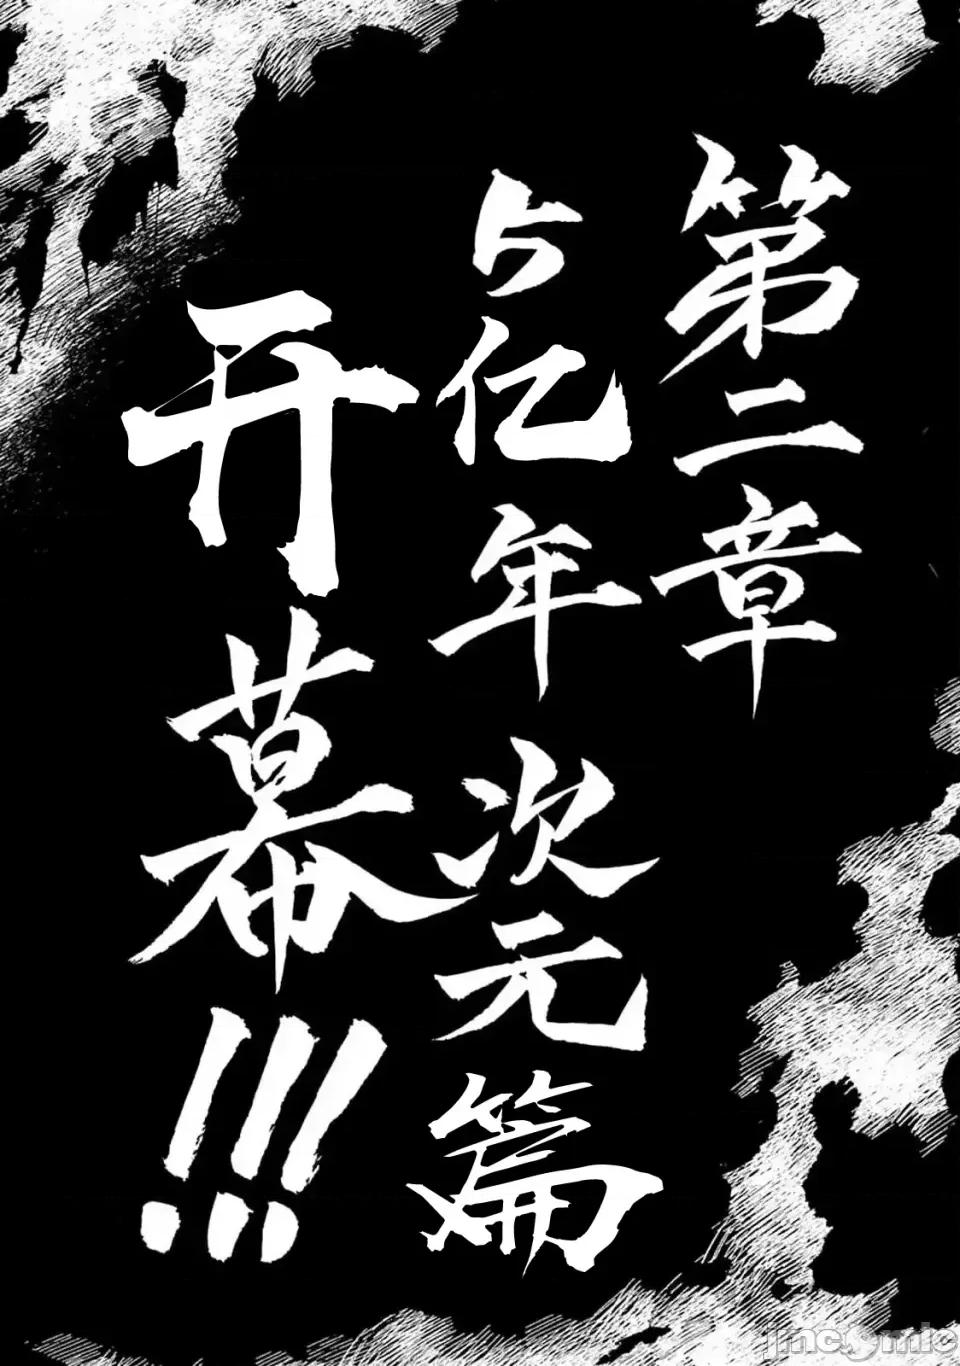 第二章
5亿年次元篇
开幕!!!